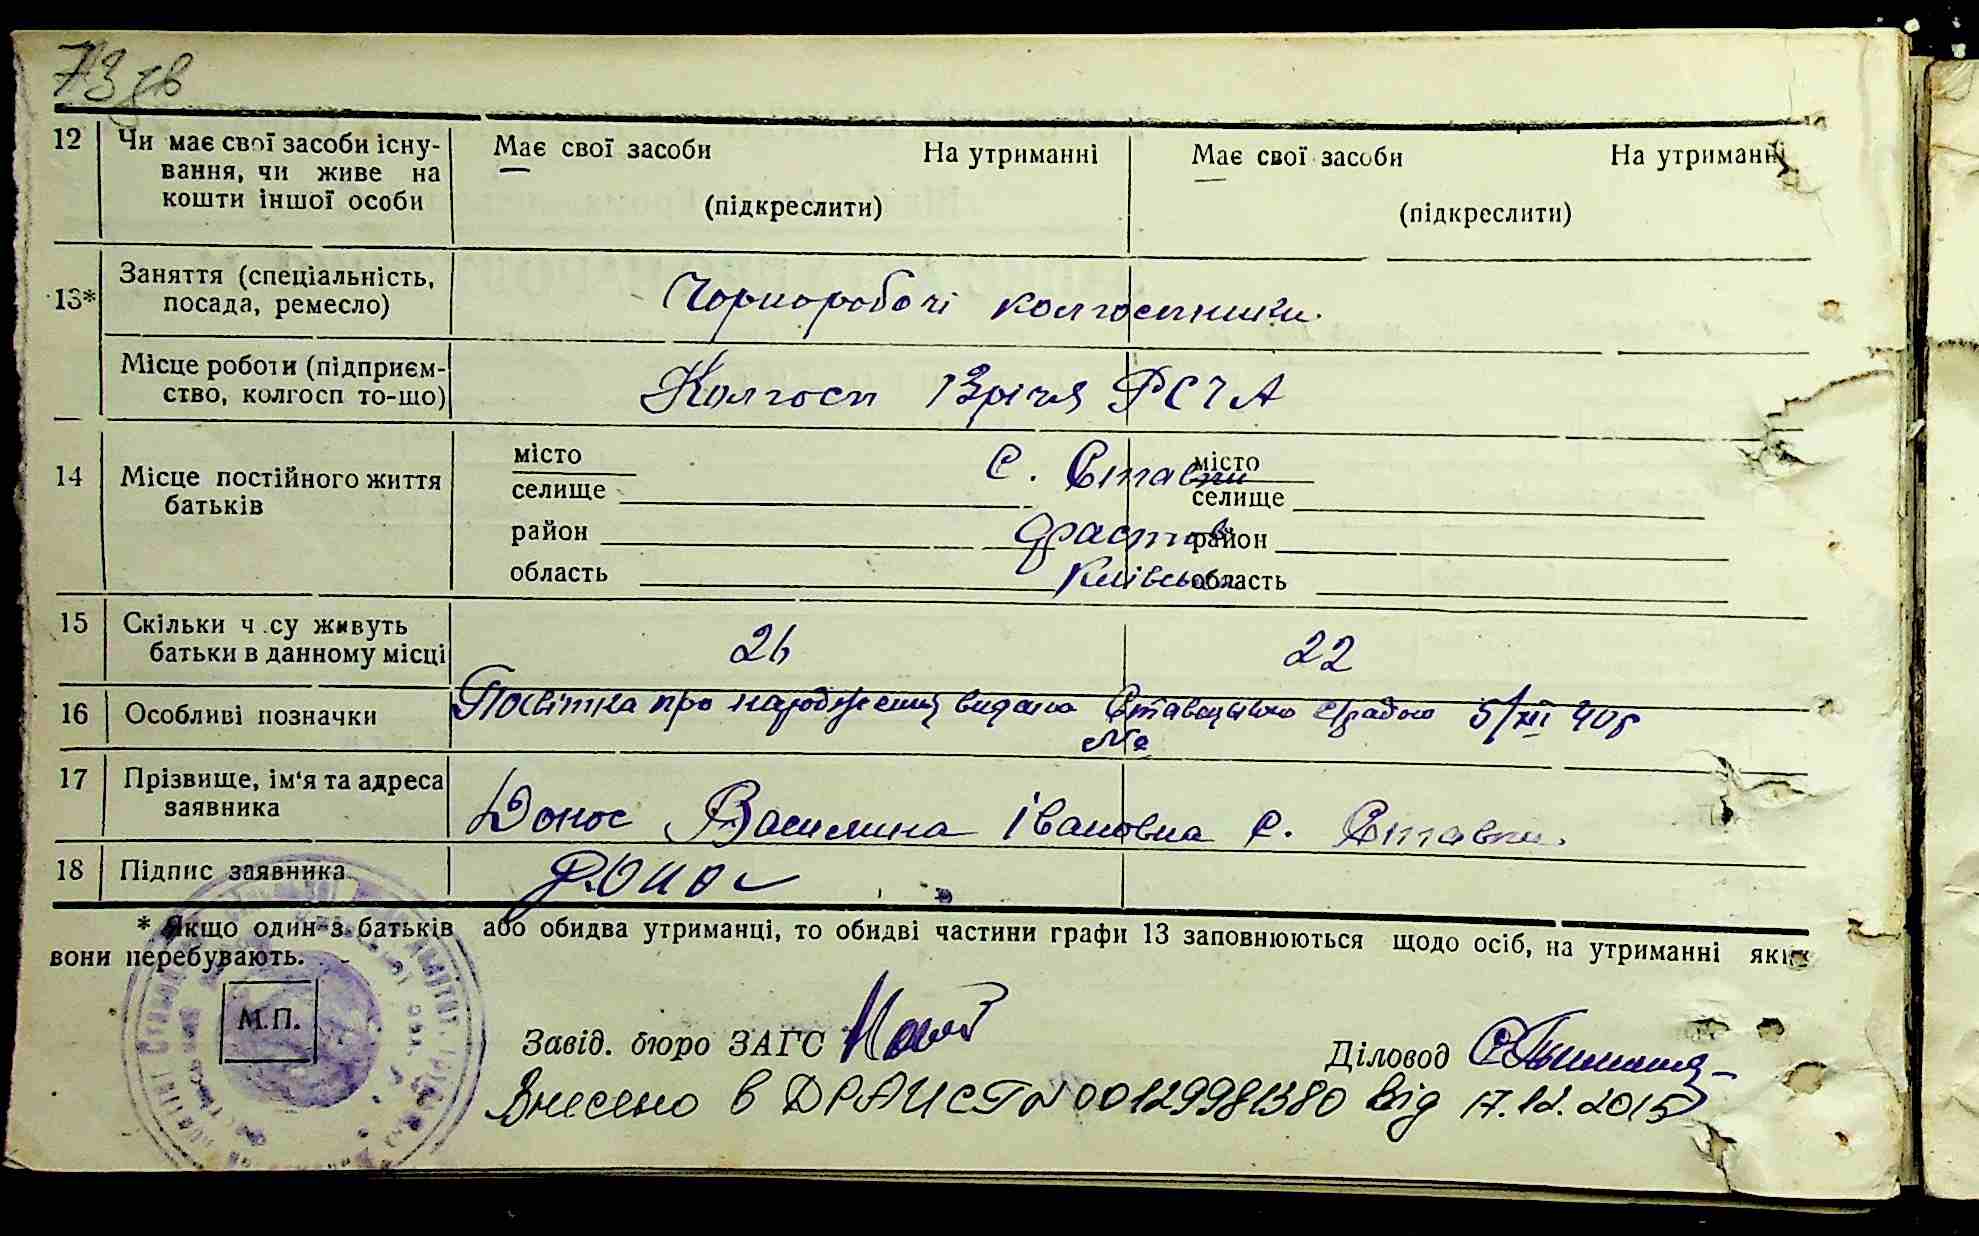 73 зв
12 Чи має свої засоби існу- Має свої засоби На утриманні Має свої засоби На утриманні
вання, чи живе на
кошти іншої особи (підкреслити) (підкреслити)
13* Заняття (спеціальність,
посада, ремесло) Чорноробочі колгоспники.
Місце роботи (підприєм-
ство, колгосп то-що) Колгосп 13річя РСЧА
14 Місце постійного життя
батьків
місто с. Ставки місто
селище селище
район Фастів район
область Київська область
15 Скільки ч су живуть
батьки в данному місці 26 22
16 Особливі позначки Посвітка про народження видана Ставецькою с/радою 5/XII 40р
№
17 Прізвище, ім'я та адреса
заявника Донос Василина Івановна с. Ставки.
18 Підпис заявника
* Якщо один з батьків або обидва утриманці, то обидві частини графи 13 заповнюються щодо осіб, на утриманні яких
вони перебувають.
М.П.
Завід. бюро ЗАГС Діловод
Внесено в ДРАЦСГ N 00129981380 від 17.12.2015